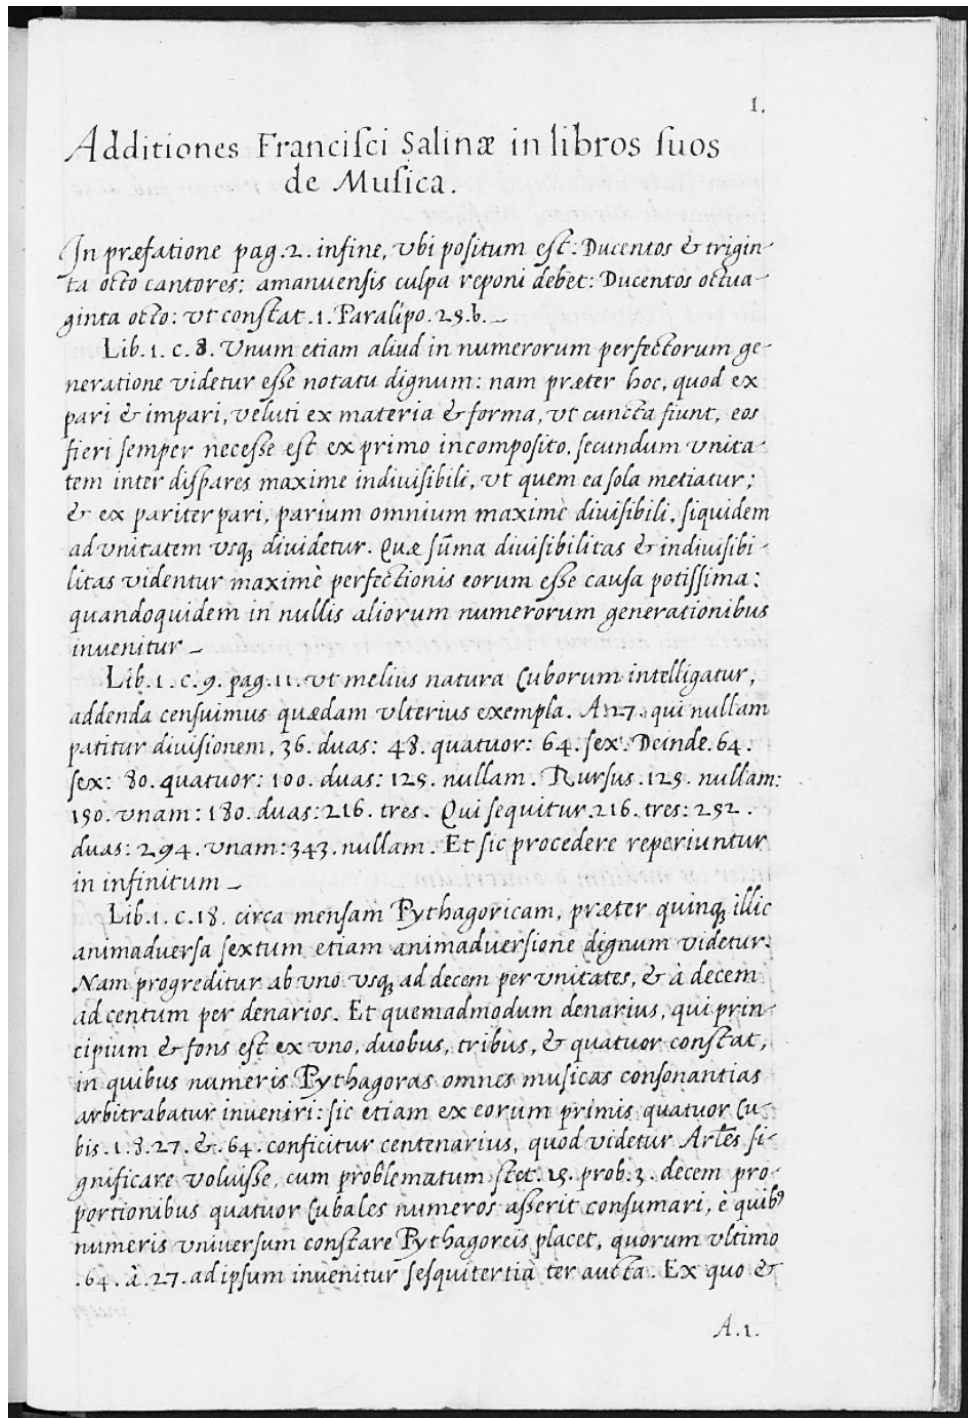 1.
Additiones Franciſci Salinæ in libros ſuos
de Muſica.
In præfatione pag. 2. infine, vbi poſitum eſt: Ducentos & trigin-
ta octo cantores: amanuenſis culpa reponi debet: Ducentos octua-
ginta octo: vt conſtat. 1. Paralipo. 25. b. _
Lib. 1. c. 8. Vnum etiam aliud in numerorum perfectorum ge-
neratione videtur eſſe notatu dignum: nam præter hoc, quod ex
pari & impari, veluti ex materia & forma, vt cuncta fiunt, eos
fieri ſemper neceſſe eſt ex primo incompoſito, ſecundum vnita-
tem inter diſpares maxime indiuiſibili, vt quem ea ſola metiatur;
& ex pariter pari, parium omnium maximè diuiſibili, ſiquidem
ad vnitatem vsq; diuidetur. Quæ ſum̃a diuiſibilitas & indiuiſibi-
litas videntur maximè perfectionis eorum eſſe cauſa potiſſima:
quandoquidem in nullis aliorum numerorum generationibus
inuenitur _
Lib. 1. c. 9. pag. 11. vt melius natura Cuborum intelligatur,
addenda cenſuimus quædam vlterius exempla. A. 27. qui nullam
patitur diuiſionem, 36. duas: 48. quatuor: 64. ſex. Deinde. 64.
ſex: 80. quatuor: 100. duas: 125. nullam. Rurſus. 125. nullam:
150. vnam: 180. duas: 216. tres. Qui ſequitur. 216. tres: 252.
duas: 294. vnam: 343. nullam. Et ſic procedere reperiuntur
in infinitum _
Lib. 1. c. 18. circa menſam Pythagoricam, præter quinq; illic
animaduerſa ſextum etiam animaduerſione dignum videtur.
Nam progreditur ab vno vsq; ad decem per vnitates, & à decem
ad centum per denarios. Et quemadmodum denarius, qui prin-
cipium & fons eſt ex vno, duobus, tribus, & quatuor conſtat,
in quibus numeris Pythagoras omnes muſicas conſonantias
arbitrabatur inueniri: ſic etiam ex eorum primis quatuor Cu-
bis. 1. 8. 27. &. 64. conficitur centenarius, quod videtur Arlẽs ſi-
gnificare voluiſſe, cum problematum ſect. 15. prob. 3. decem pro
portionibus quatuor Cubales numeros aſſerit conſumari, è quibꝰ
numeris vniuerſum conſtare Pythagoreis placet, quorum vltimo
. 64. à. 27. ad ipſum inuenitur ſeſquitertia ter aucta. Ex quo &
A. 1.